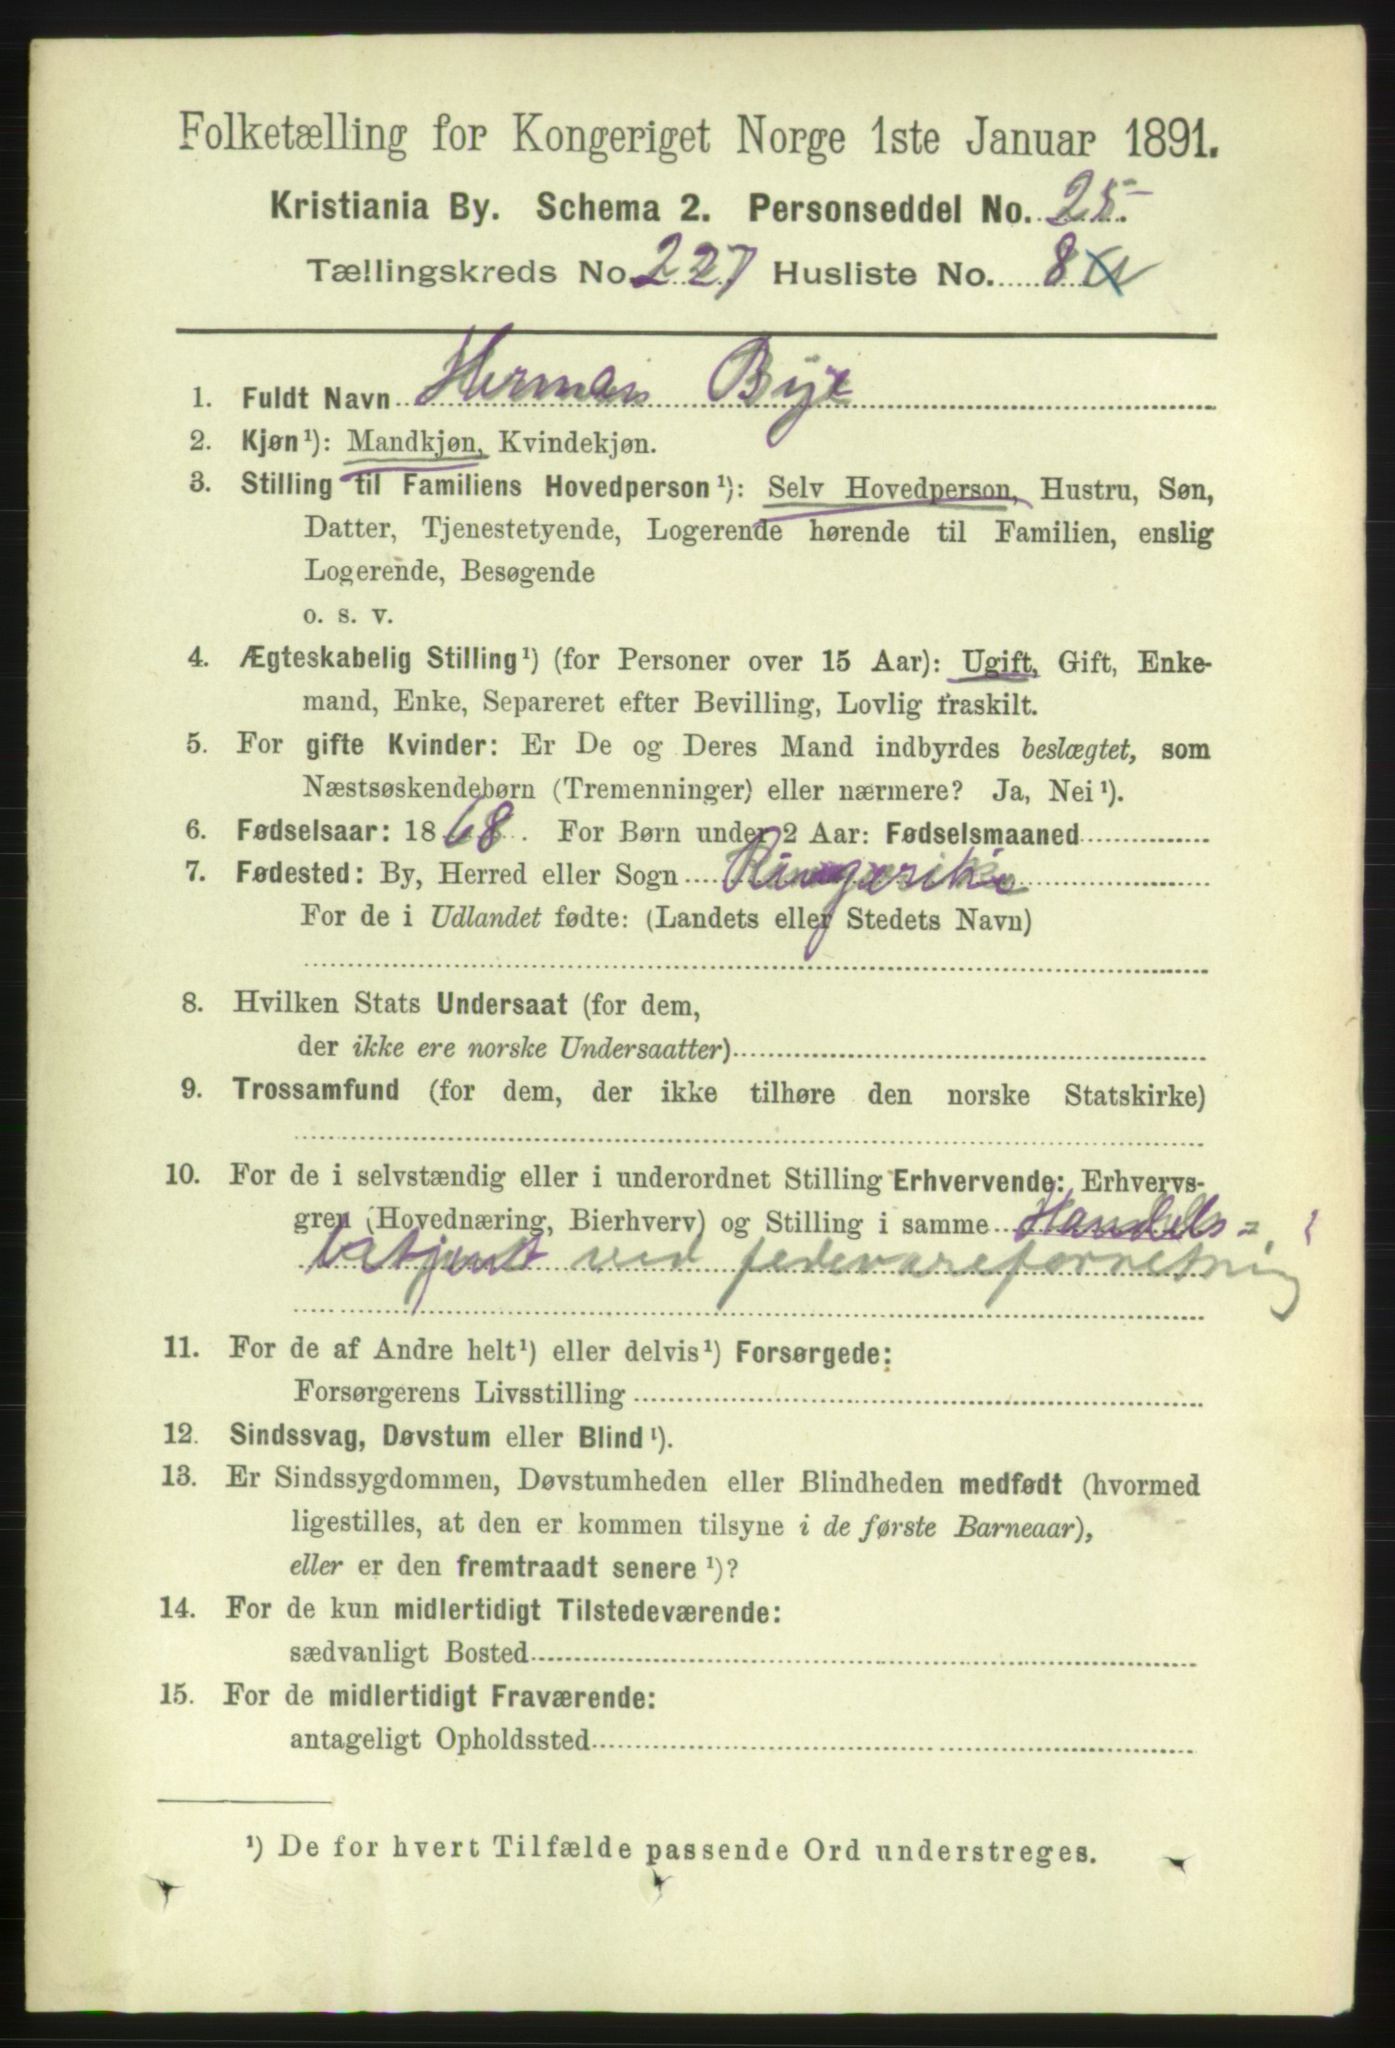 Folketælling for Kongeriget Norge 1ste Januar 1891.
Kristiania By. Schema 2. Personseddel No. 25
Tællingskreds No. 227 Husliste No. 8
1. Fuldt Navn Herman Bye
2. Kjøn¹): Mandkjøn, Kvindekjøn.
3. Stilling til Familiens Hovedperson¹): Selv Hovedperson, Hustru, Søn,
Datter, Tjenestetyende, Logerende hørende til Familien, enslig
Logerende, Besøgende
o. s. v.
4. Ægteskabelig Stilling¹) (for Personer over 15 Aar): Ugift, Gift, Enke-
mand, Enke, Separeret efter Bevilling, Lovlig fraskilt.
5. For gifte Kvinder: Er De og Deres Mand indbyrdes beslægtet, som
Næstsøskendebørn (Tremenninger) eller nærmere? Ja, Nei¹).
6. Fødselsaar: 1868. For Børn under 2 Aar: Fødselsmaaned
7. Fødested: By, Herred eller Sogn Ringerike
For de i Udlandet fødte: (Landets eller Stedets Navn)
8. Hvilken Stats Undersaat (for dem,
der ikke ere norske Undersaatter)
9. Trossamfund (for dem, der ikke tilhøre den norske Statskirke)
10. For de i selvstændig eller i underordnet Stilling Erhvervende: Erhvervs-
gren (Hovednæring, Bierhverv) og Stilling i samme Handels=
betjent ved fedevareforretning
11. For de af Andre helt¹) eller delvis¹) Forsørgede:
Forsørgerens Livsstilling
12. Sindssvag, Døvstum eller Blind¹).
13. Er Sindssygdommen, Døvstumheden eller Blindheden medfødt (hvormed
ligestilles, at den er kommen tilsyne i de første Barneaar),
eller er den fremtraadt senere¹)?
14. For de kun midlertidigt Tilstedeværende:
sædvanligt Bosted
15. For de midlertidigt Fraværende:
antageligt Opholdssted
¹) De for hvert Tilfælde passende Ord understreges.